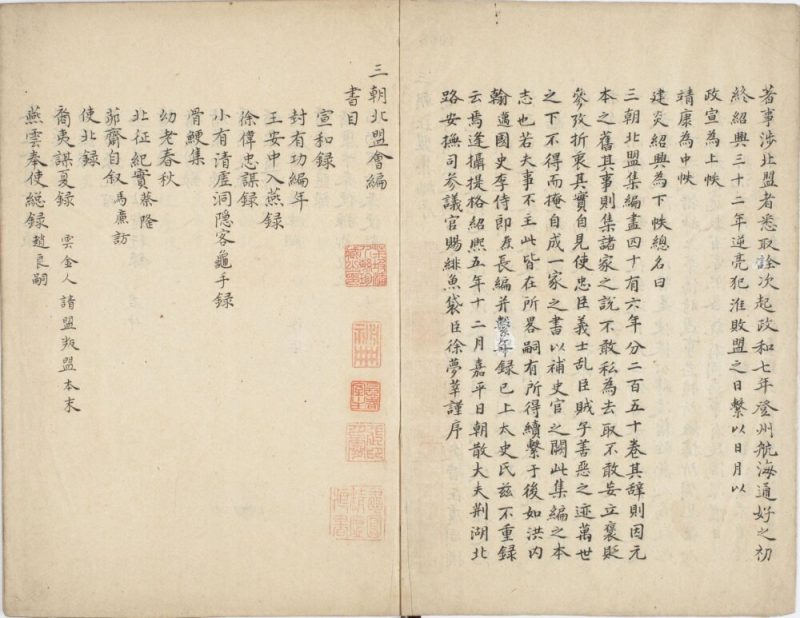 著事涉北盟者悉取詮次起政和七年登州航海通好之初
終紹興三十二年逆亮犯淮敗盟之日繫以日月以
政宣為上帙
靖康為中帙
建炎紹興為下帙總名曰
三朝北盟集編盡四十有六年分二百五十卷其辞則因元
本之舊其事則集諸家之說不敢私為去取不敢妄立褒貶
參攷折衷其實自見使忠臣義士乱臣賊子善惡之迹萬世
之下不得而掩自成一家之書以補史官之闕此集編之本
志也若夫事不主此皆在所畧嗣有所得續繫于後如洪内
翰邁國史李侍郎燾長編并繫年録已上太史氏玆不重録
云焉逢攝提格紹熙五年十二月嘉平日朝散大夫荆湖北
路安撫司參議官賜緋魚袋臣徐夢莘謹序
三朝北盟會編
書目
宣和録
封有功編年
王安中入燕録
徐偉忠謀録
小有清虛洞隐客龜手録
骨鯁集
幼老春秋
北征紀實蔡絛
茆齋自叙馬廉訪
使北録
裔夷謀夏録 雲金人請盟叛盟本末
燕雲奉使総録趙良嗣